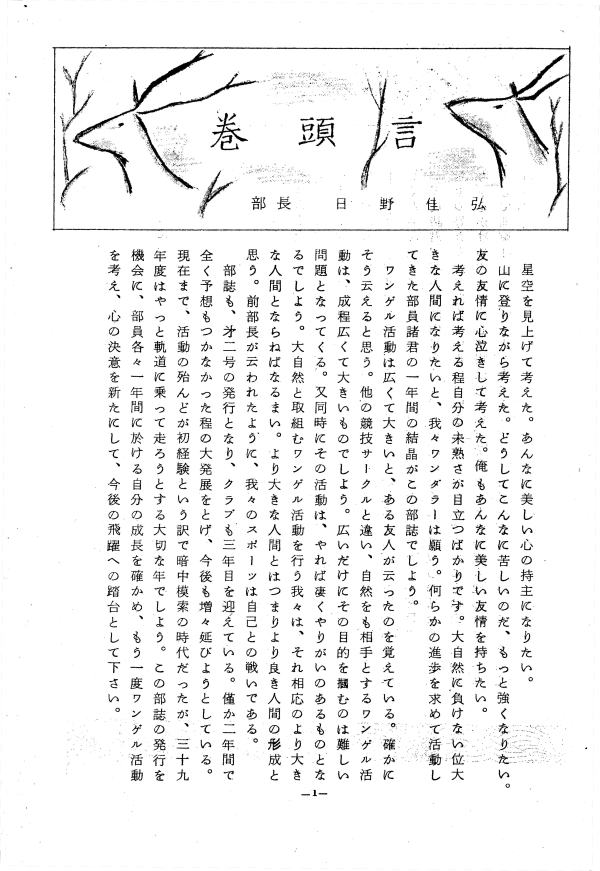 巻頭言
部長 日野佳弘
星空を見上げて考えた。あんなに美しい心の持主になりたい。
山に登りながら考えた。どうしてこんなに苦しいのだ、もっと強くなりたい。
友の友情に心泣きして考えた。俺もあんなに美しい友情を持ちたい。
考えれば考える程自分の未熟さが目立つばかりです。大自然に負けない位大
きな人間になりたいと、我々ワンダラーは願う。何らかの進歩を求めて活動し
てきた部員諸君の一年間の結晶がこの部誌でしょう。
ワンゲル活動は広くて大きいと、ある友人が云ったのを覚えている。確かに
そう云えると思う。他の競技サークルと違い、自然をも相手とするワンゲル活
動は、成程広くて大きいものでしょう。広いだけにその目的を摑むのは難しい
問題となってくる。又同時にその活動は、やれば凄くやりがいのあるものとな
るでしょう。大自然と取組むワンゲル活動を行う我々は、それ相応のより大き
な人間とならねばなるまい。より大きな人間とはつまりより良き人間の形成と
思う。前部長が云われたように、我々のスポーツは自己との戦いである。
部誌も、才二号の発行となり、クラブも三年目を迎えている。僅か二年間で
全く予想もつかなかった程の大発展をとげ、今後も増々延びようとしている。
現在まで、活動の殆んどが初経験という訳で暗中模索の時代だったが、三十九
年度はやっと軌道に乗って走ろうとする大切な年でしょう。この部誌の発行を
機会に、部員各々一年間に於ける自分の成長を確かめ、もう一度ワンゲル活動
を考え、心の決意を新たにして、今後の飛躍への踏台として下さい。
—1—